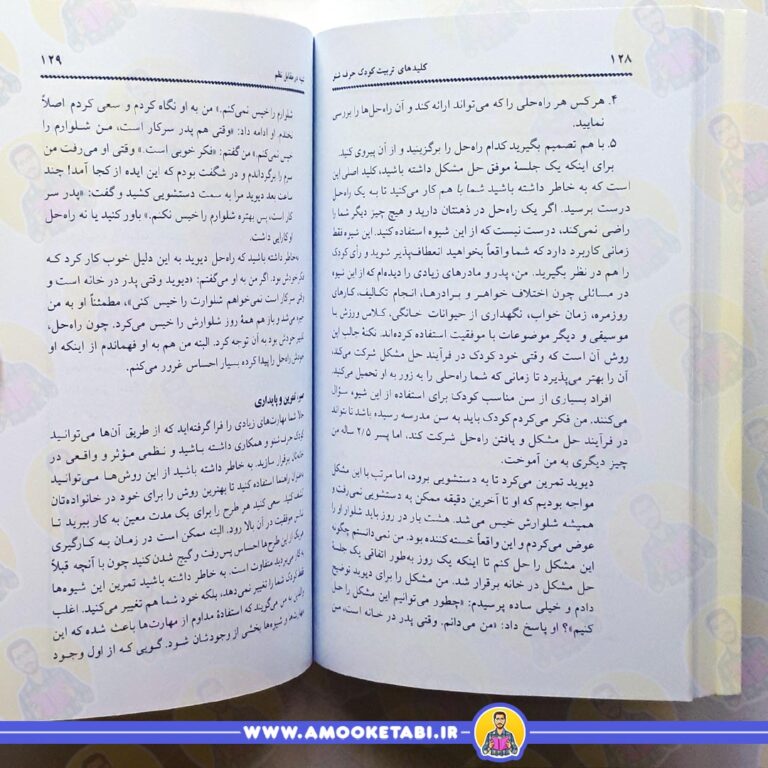 ۱۲۸
کلیدهای تربیت کودک حرف شنو
۴. هر کس هر راه‌حلی را که می‌تواند ارائه کند و آن راه‌حل‌ها را بررسی
نمایید.
۵. با هم تصمیم بگیرید کدام راه‌حل را برگزینید و از آن پیروی کنید.
برای اینکه یک جلسهٔ موفق حل مشکل داشته باشید، کلید اصلی این
است که به خاطر داشته باشید شما با هم کار می‌کنید تا به یک راه‌حل
درست برسید. اگر یک راه‌حل در ذهنتان دارید و هیچ چیز دیگر شما را
راضی نمی‌کند، درست نیست که از این شیوه استفاده کنید. این شیوه فقط
زمانی کاربرد دارد که شما واقعاً بخواهید انعطاف‌پذیر شوید و رأی کودک
را هم در نظر بگیرید. من، پدر و مادرهای زیادی را دیده‌ام که از این شیوه
در مسائلی چون اختلاف خواهر و برادرها، انجام تکالیف، کارهای
روزمره، زمان خواب، نگهداری از حیوانات خانگی، کلاس ورزش یا
موسیقی و دیگر موضوعات با موفقیت استفاده کرده‌اند. نکتهٔ جالب این
روش آن است که وقتی خود کودک در فرآیند حل مشکل شرکت می‌کند،
آن را بهتر می‌پذیرد تا زمانی که شما راه‌حلی را به زور به او تحمیل می‌کنید.
افراد بسیاری از سن مناسب کودک برای استفاده از این شیوه سؤال
می‌کنند. من فکر می‌کردم کودک باید به سن مدرسه رسیده باشد تا بتواند
در فرآیند حل مشکل و یافتن راه‌حل شرکت کند، اما پسر ۲/۵ ساله من
چیز دیگری به من آموخت.
دیوید تمرین می‌کرد تا به دستشویی برود، اما مرتب با این مشکل
مواجه بودیم که او تا آخرین دقیقه ممکن به دستشویی نمی‌رفت و
همیشه شلوارش خیس می‌شد. هشت بار در روز باید شلوار او را
عوض می‌کردم و این واقعاً خسته کننده بود. من نمی‌دانستم چگونه
این مشکل را حل کنم تا اینکه یک روز به‌طور اتفاقی یک جلسهٔ
حل مشکل در خانه برقرار شد. من مشکل را برای دیوید توضیح
دادم و خیلی ساده پرسیدم: «چطور می‌توانیم این مشکل را حل
کنیم»؟ او پاسخ داد: «من می‌دانم. وقتی پدر در خانه است، من
۱۲۹
در مقابل نظم
شلوارم را خیس نمی‌کنم.» من به او نگاه کردم و سعی کردم اصلاً
نخندم. او ادامه داد: «وقتی هم پدر سرکار است، من شلوارم را
خیس نمی‌کنم.» من گفتم: «فکر خوبی است.» وقتی او می‌رفت من
سرم را برگرداندم و در شگفت بودم که این ایده از کجا آمد! چند
ساعت بعد دیوید مرا به سمت دستشویی کشید و گفت: «پدر سر
کار است، پس بهتره شلوارم را خیس نکنم.» باور کنید یا نه راه‌حل
او کارایی داشت.
به‌خاطر داشته باشید که راه‌حل دیوید به این دلیل خوب کار کرد که
فکر خودش بود. اگر من به او می‌گفتم: «دیوید وقتی پدر در خانه است و
وقتی سر کار است نمی‌خواهم شلوارت را خیس کنی»، مطمئناً او به من
خیره می‌شد و باز هم همهٔ روز شلوارش را خیس می‌کرد. چون راه‌حل،
خودش بود به آن توجه کرد. البته من هم به او فهماندم از اینکه او
خودش راه‌حل را پیدا کرده بسیار احساس غرور می‌کنم.
صبر، تمرین و پایداری
حالا شما مهارت‌های زیادی را فرا گرفته‌اید که از طریق آن‌ها می‌توانید
کودک حرف شنو و همکاری داشته باشید و نظمی مؤثر و واقعی در
خانه‌تان برقرار سازید. به خاطر داشته باشید از این روش‌ها می‌توانید
راهنما استفاده کنید تا بهترین روش را برای خود در خانواده‌تان
کنید. سعی کنید هر طرح را برای یک مدت معین به کار ببرید تا
موفقیت در آن بالا رود. البته ممکن است در زمان به کارگیری
هر یک از این طرح‌ها احساس پس‌رفت و گیج شدن کنید چون با آنچه قبلاً
به کار می‌بردید متفاوت است. به خاطر داشته باشید تمرین این شیوه‌ها
فقط کودک شما را تغییر نمی‌دهد، بلکه خود شما هم تغییر می‌کنید. اغلب
والدین به من می‌گویند که استفادهٔ مداوم از مهارت‌ها باعث شده که این
مهارت‌ها و شیوه‌ها بخشی از وجودشان شود. گویی که از اول وجود
WWW.AMOOKETABI.IR